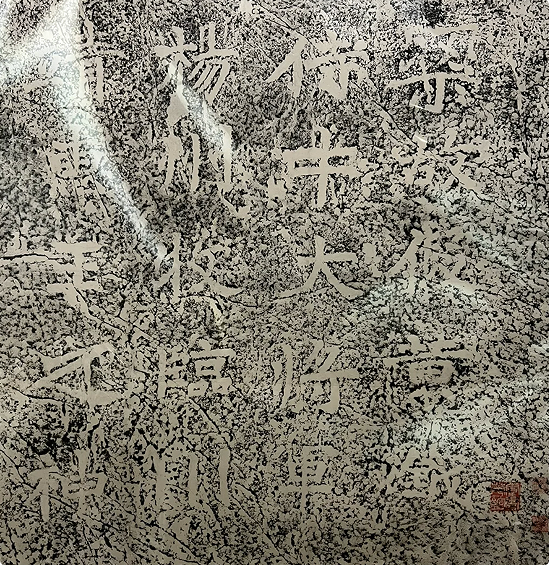 梁故假黃鉞
侍中大將軍
楊州牧臨川
靖惠王之神